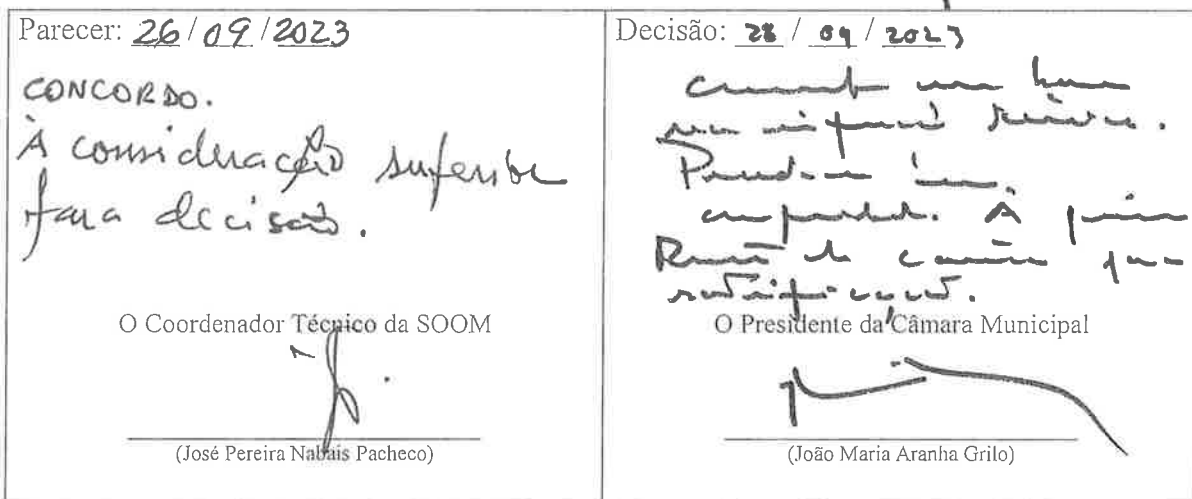 Parecer: 26/09/2023
CONCORDO.
À consideração superior
para decisão.
O Coordenador Técnico da SOOM
(José Pereira Nabais Pacheco)
Decisão: 28/09/2023
com base
na informação técnica.
À próxima
Reunião de Câmara para
ratificação.
O Presidente da Câmara Municipal
(João Maria Aranha Grilo)